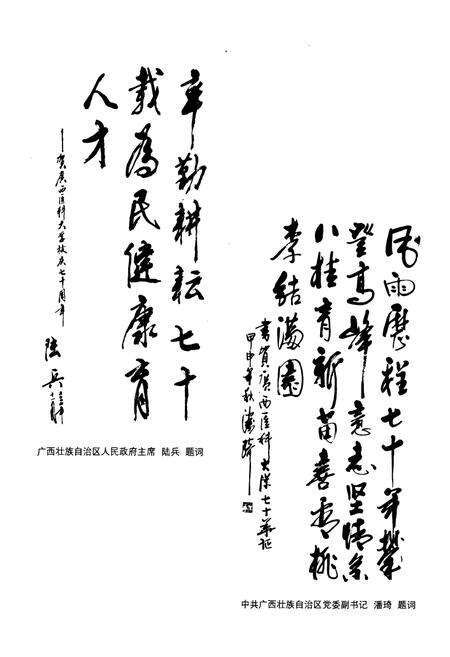 辛勤耕耘七十
載為民健康育
人才
——贺廣西医科大学校庆七十周年
陆兵
广西壮族自治区人民政府主席 陆兵 题词
风雨歷程七十年攀
登高峰意志坚情系
八桂育新苗喜看桃
李結滿園
書賀廣西医科大学七十华诞
甲申年秋潘琦
中共广西壮族自治区党委副书记 潘琦 题词